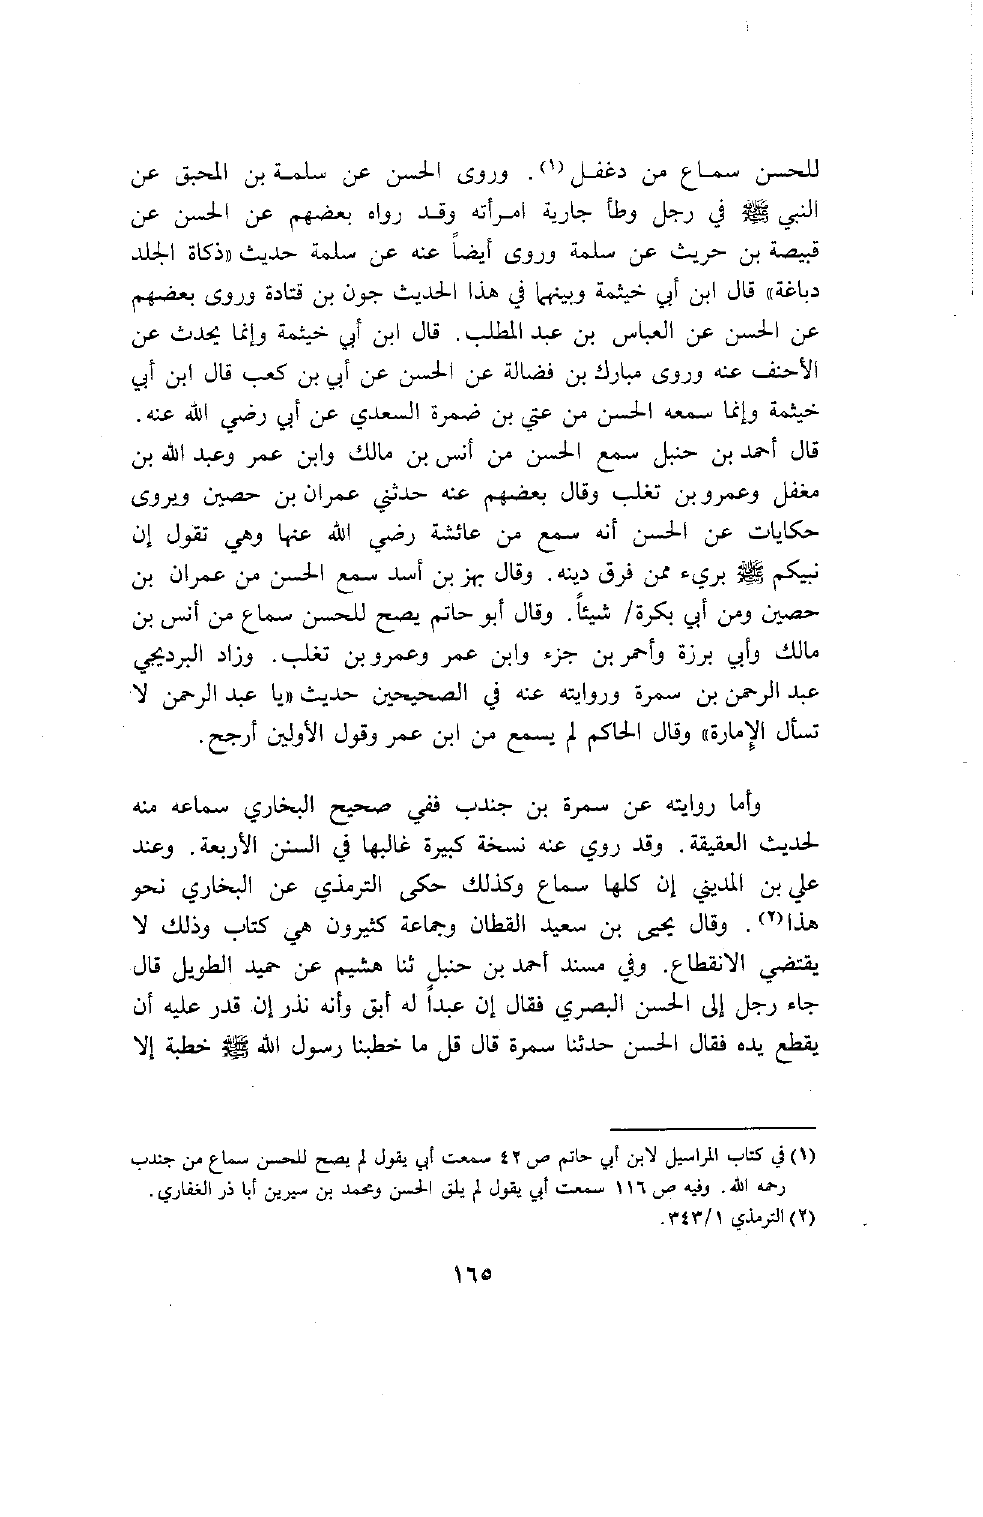 للحسن سماع من دغفل (١). وروى الحسن عن سلمة بن المحبق عن
النبي ﷺ في رجل وطأ جارية امرأته وقد رواه بعضهم عن الحسن عن
قبيصة بن حريث عن سلمة وروى أيضاً عنه عن سلمة حديث «ذكاة الجلد
دباغة» قال ابن أبي خيثمة وبينهما في هذا الحديث جون بن قتادة وروى بعضهم
عن الحسن عن العباس بن عبد المطلب. قال ابن أبي خيثمة وإنما يحدث عن
الأحنف عنه وروى مبارك بن فضالة عن الحسن عن أبي بن كعب قال ابن أبي
خيثمة وإنما سمعه الحسن من عتي بن ضمرة السعدي عن أبي رضي الله عنه.
قال أحمد بن حنبل سمع الحسن من أنس بن مالك وابن عمر وعبد الله بن
مغفل وعمرو بن تغلب وقال بعضهم عنه حدثني عمران بن حصين ويروى
حكايات عن الحسن أنه سمع من عائشة رضي الله عنها وهي تقول إن
نبيكم ﷺ بريء ممن فرق دينه. وقال بهز بن أسد سمع الحسن من عمران بن
حصين ومن أبي بكرة/ شيئاً. وقال أبو حاتم يصح للحسن سماع من أنس بن
مالك وأبي برزة وأحمر بن جزء وابن عمر وعمرو بن تغلب. وزاد البرديجي
عبد الرحمن بن سمرة وروايته عنه في الصحيحين حديث «يا عبد الرحمن لا
تسأل الإمارة» وقال الحاكم لم يسمع من ابن عمر وقول الأولين أرجح.
وأما روايته عن سمرة بن جندب ففي صحيح البخاري سماعه منه
لحديث العقيقة. وقد روي عنه نسخة كبيرة غالبها في السنن الأربعة. وعند
علي بن المديني إن كلها سماع وكذلك حكى الترمذي عن البخاري نحو
هذا (٢). وقال يحيى بن سعيد القطان وجماعة كثيرون هي كتاب وذلك لا
يقتضي الانقطاع. وفي مسند أحمد بن حنبل ثنا هشيم عن حميد الطويل قال
جاء رجل إلى الحسن البصري فقال إن عبداً له أبق وأنه نذر إن قدر عليه أن
يقطع يده فقال الحسن حدثنا سمرة قال قل ما خطبنا رسول الله ﷺ خطبة إلا
(١) في كتاب المراسيل لابن أبي حاتم ص ٤٢ سمعت أبي يقول لم يصح للحسن سماع من جندب
رحمه الله. وفيه ص ١١٦ سمعت أبي يقول لم يلق الحسن ومحمد بن سيرين أبا ذر الغفاري.
(٢) الترمذي ٣٤٣/١.
١٦٥